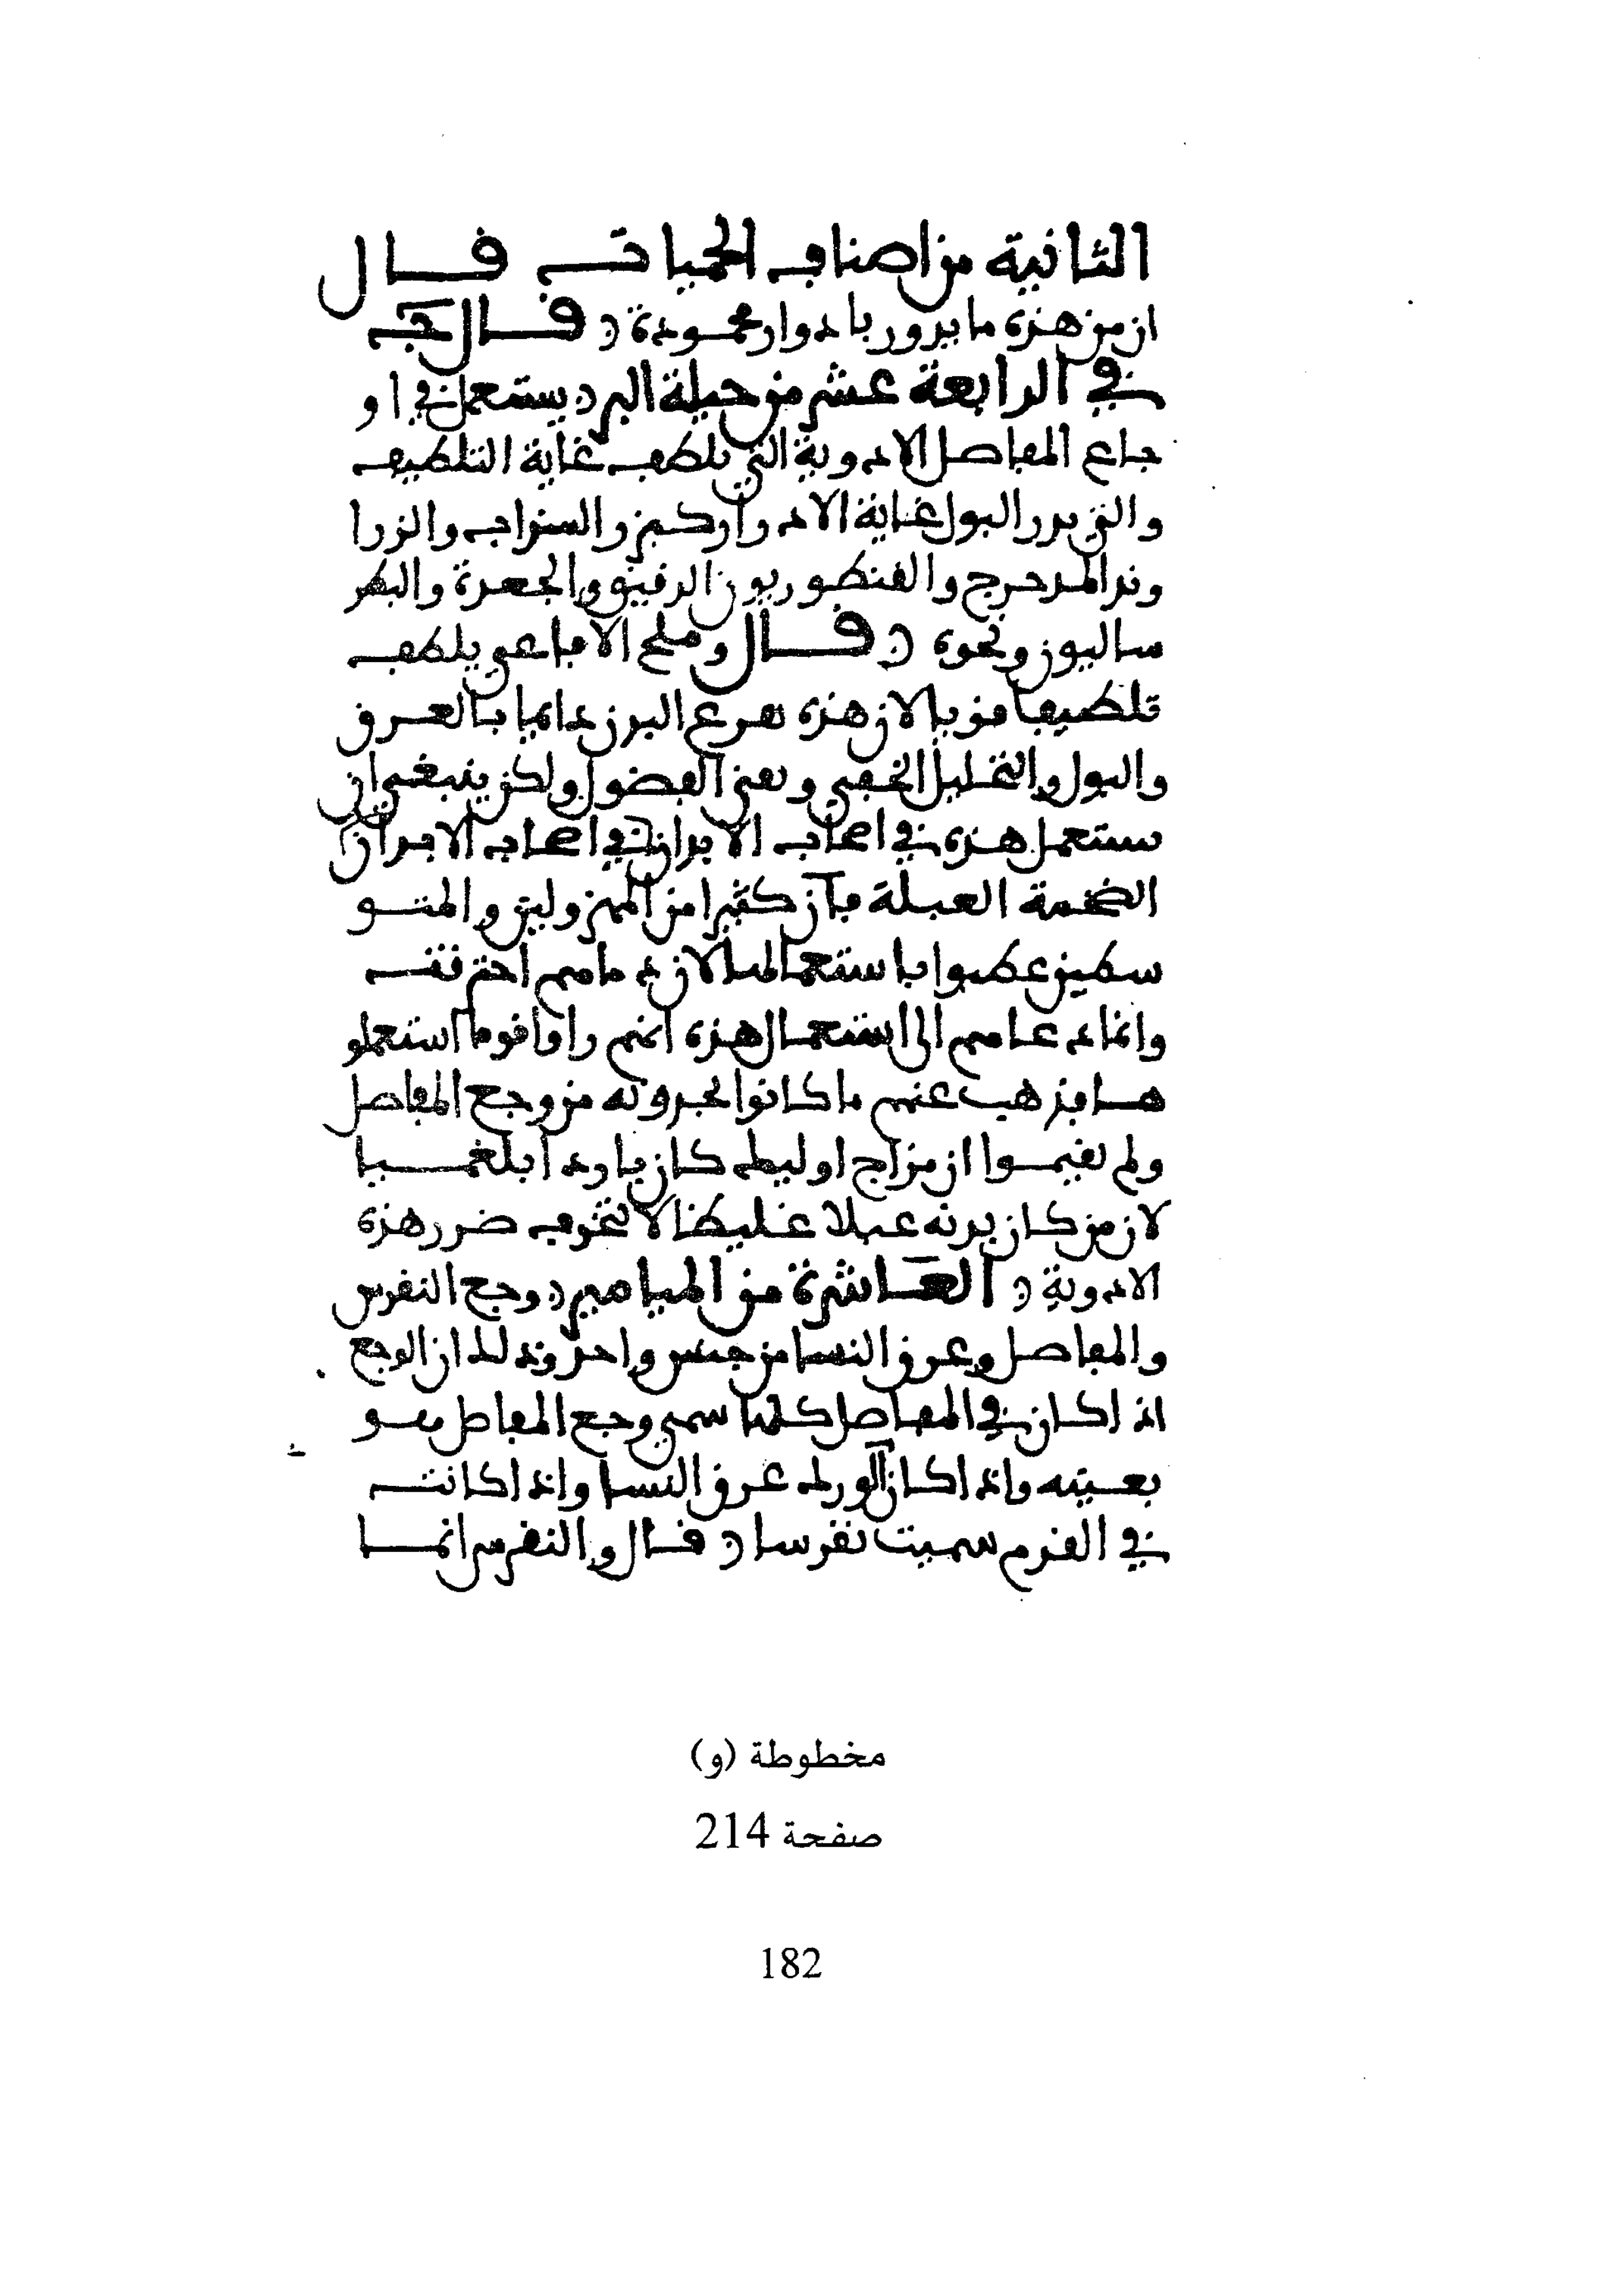 الثانية من اصناف الحميات قال
ان من هذه ما يدور بادوار محمودة قال ج
في الرابعة عشر من حيلة البر يستعمل في او
جاع المفاصل الادوية التي تلطف غاية التلطيف
والتي تدر البول غاية الادرار كبزر السذاب والزرا
وند المدحرج والقنطوريون الدقيق والجعدة والبطر
ساليون ونحوه قال وملح الافاعي يلطف
تلطيفا قويا لان هذه تفرغ البدن دايما بالعرق
والبول والتحليل الخفي وتفني الفضول ولكن ينبغي ان
تستعمل هذه في اصحاب الابدان في اصحاب الابدان
الضخمة العبلة فان كثيرا من المهزولين والمتو
سطين عطبوا باستعمالها لان دماهم احترقت
وانما دعاهم الى استعمال هذه انهم راوا قوما استعملو
ها فذهب عنهم ما كانوا يجدونه من وجع المفاصل
ولم يفهموا ان مزاج اوليك كان باردا بلغميا
لان من كان بدنه عبلا غليظا لا تخوف ضرر هذه
الادوية العاشرة من الميامير وجع النقرس
والمفاصل وعرق النسا من جنس واحد وذلك ان الوجع
اذا كان في المفاصل كلها سمي وجع المفاصل فهو
بعينه واذا كان الورك عرق النسا واذا كانت
في القدم سميت نقرسا قال والنقرس انما
مخطوطة (و)
صفحة 214
182